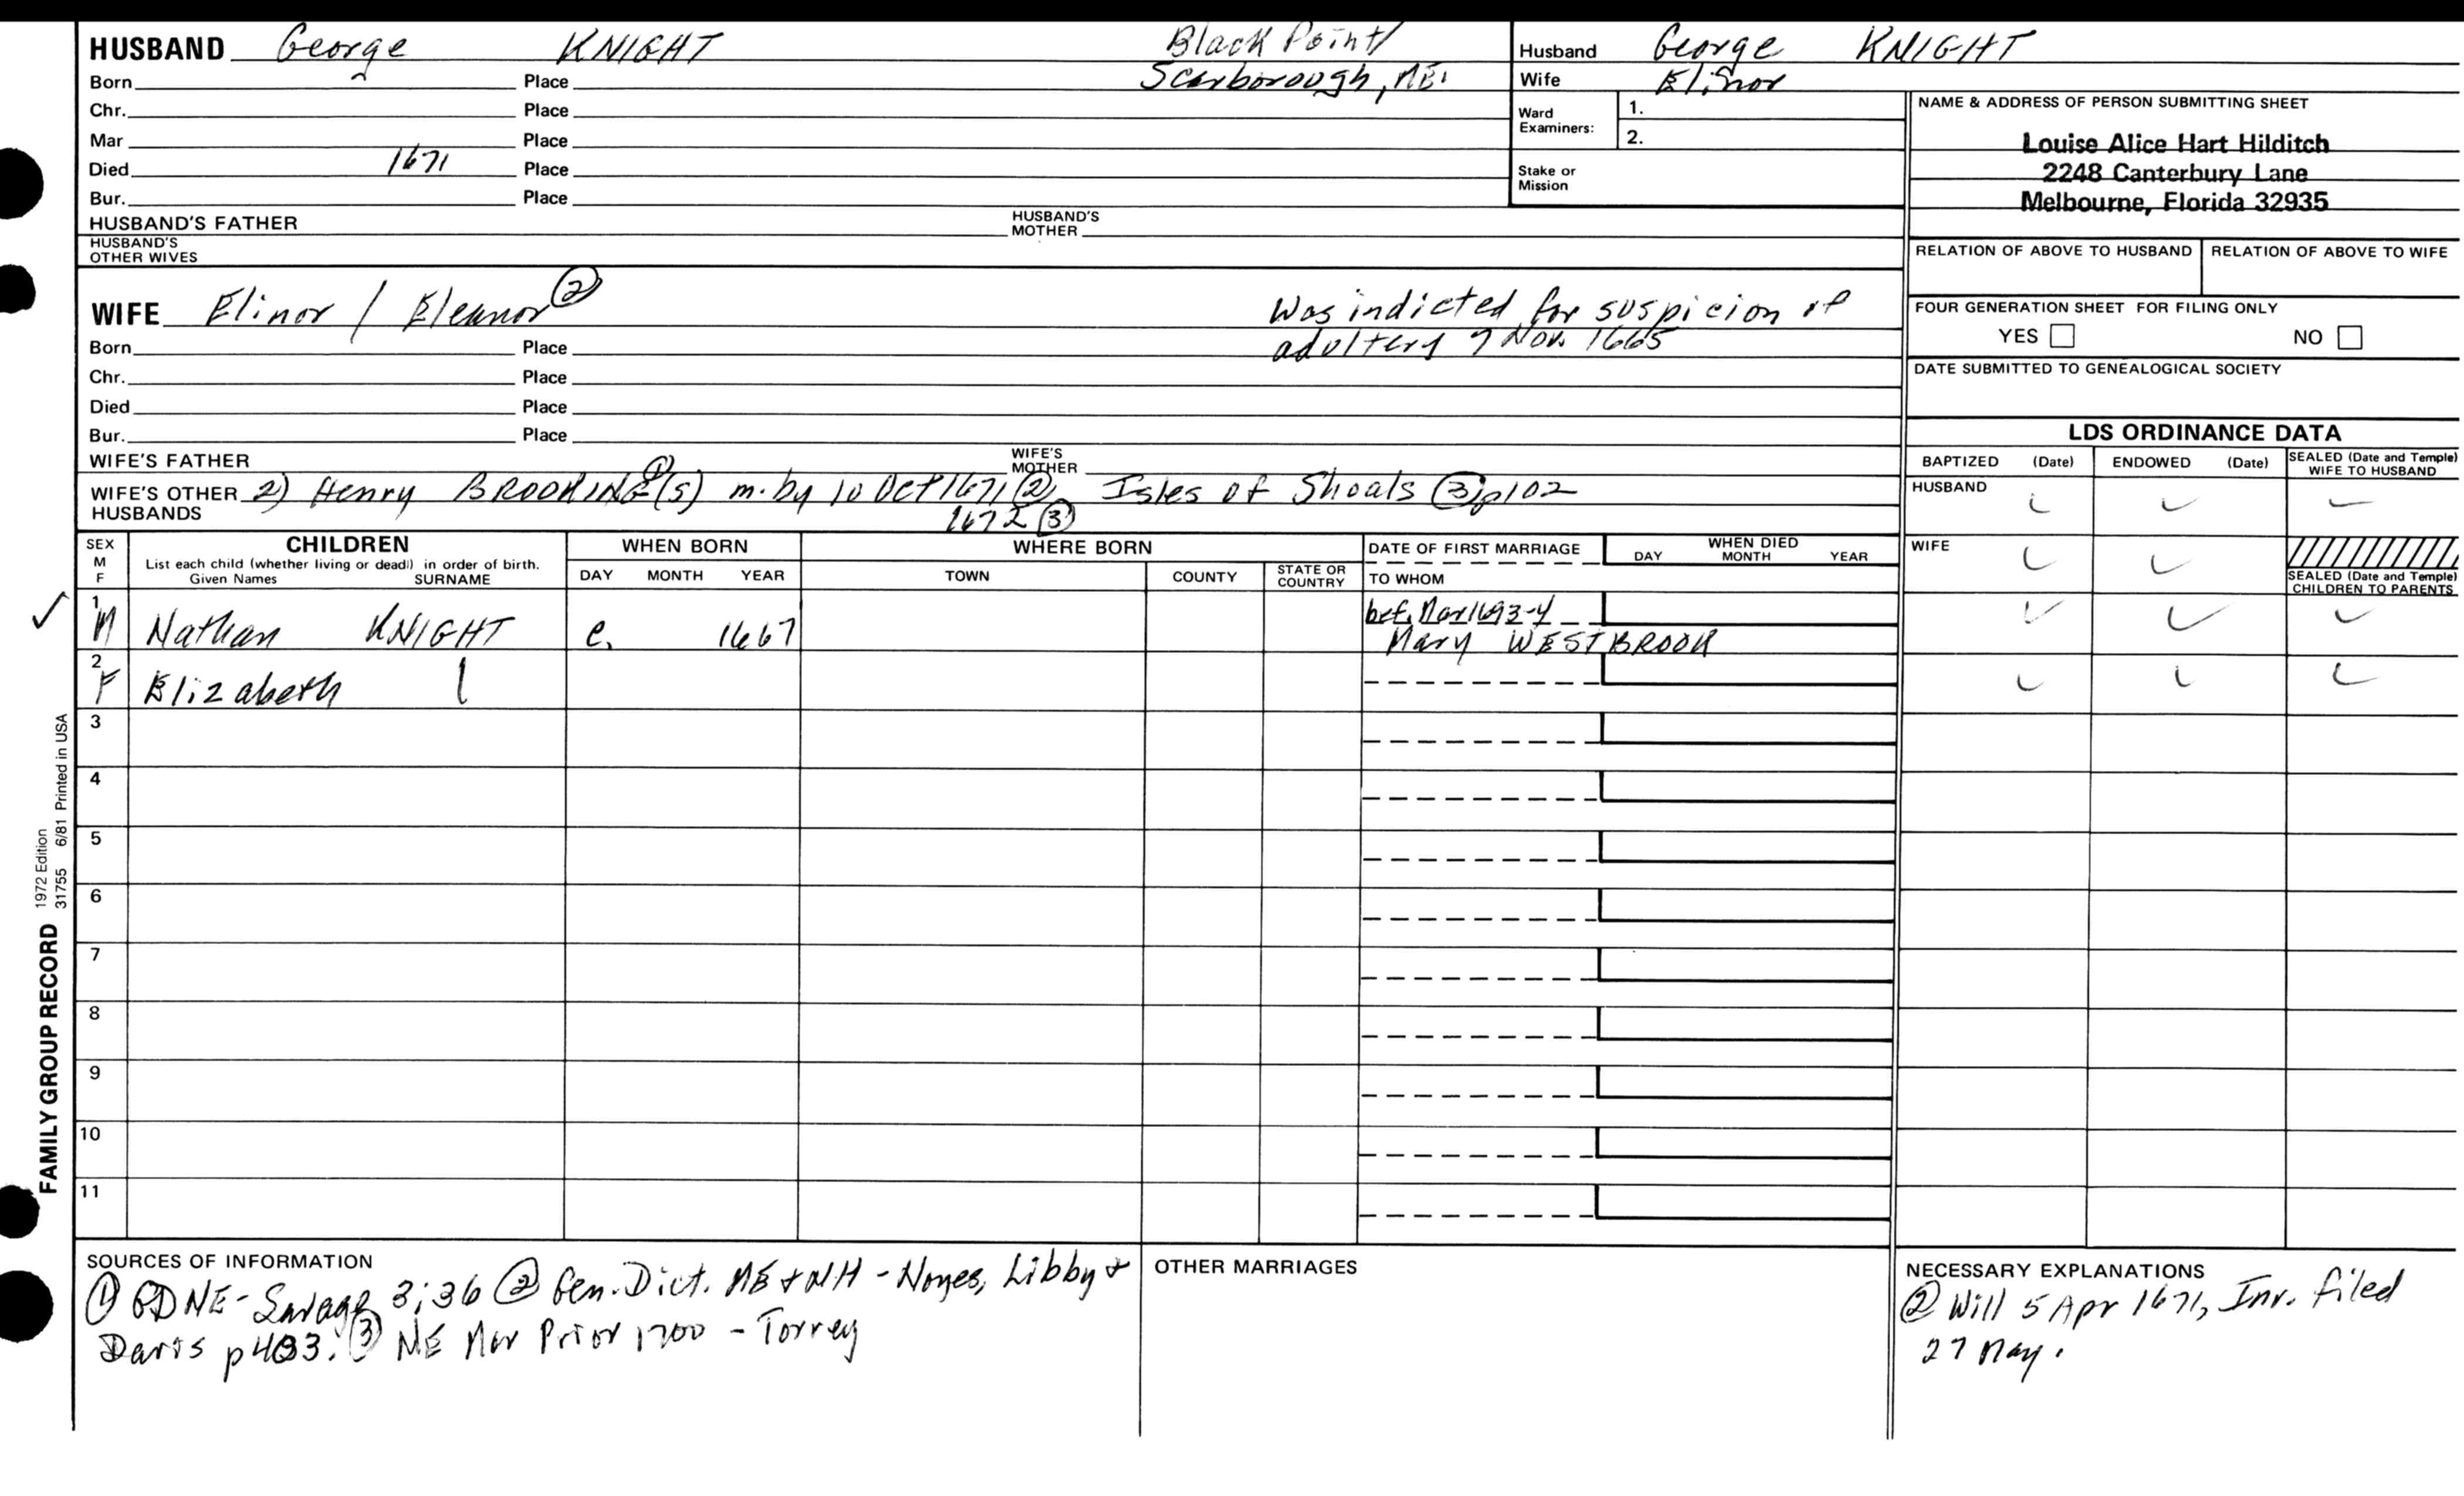 HUSBAND George KNIGHT Black Point/
Born Place Scarborough, ME.
Chr. Place
Mar Place
Died 1671 Place
Bur. Place
HUSBAND'S FATHER HUSBAND'S MOTHER
HUSBAND'S OTHER WIVES
Husband George KNIGHT
Wife Elinor
Ward Examiners: 1.
2.
Stake or Mission
NAME & ADDRESS OF PERSON SUBMITTING SHEET
Louise Alice Hart Hilditch
2248 Canterbury Lane
Melbourne, Florida 32935
RELATION OF ABOVE TO HUSBAND RELATION OF ABOVE TO WIFE
FOUR GENERATION SHEET FOR FILING ONLY
YES NO
DATE SUBMITTED TO GENEALOGICAL SOCIETY
WIFE Elinor / Eleanor ② Was indicted for suspicion of
Born Place adultery 7 Nov. 1665
Chr. Place
Died Place
Bur. Place
WIFE'S FATHER WIFE'S MOTHER
WIFE'S OTHER HUSBANDS 2) Henry BROOKING(S) ① m. by 10 Oct 1671 ② Isles of Shoals ③ p102
1672 ③
LDS ORDINANCE DATA
BAPTIZED (Date) ENDOWED (Date) SEALED (Date and Temple) WIFE TO HUSBAND
HUSBAND ✓ ✓ ✓
WIFE ✓ ✓
SEALED (Date and Temple) CHILDREN TO PARENTS
SEX M F
CHILDREN
List each child (whether living or dead) in order of birth.
Given Names SURNAME
WHEN BORN
DAY MONTH YEAR
WHERE BORN
TOWN COUNTY STATE OR COUNTRY
DATE OF FIRST MARRIAGE
TO WHOM
WHEN DIED
DAY MONTH YEAR
✓ 1 M Nathan KNIGHT c. 1667 bef. Mar 1693-4 ✓ ✓ ✓
Mary WESTBROOK
2 F Elizabeth | ✓ ✓ ✓
3
4
5
6
7
8
9
10
11
FAMILY GROUP RECORD 1972 Edition
31755 6/81 Printed in USA
SOURCES OF INFORMATION
① GDNE - Savage 3:36 ② Gen. Dict. ME + NH - Noyes, Libby +
Davis p403. ③ NE Mar Prior 1700 - Torrey
OTHER MARRIAGES
NECESSARY EXPLANATIONS
② Will 5 Apr 1671, Inv. filed
27 May.